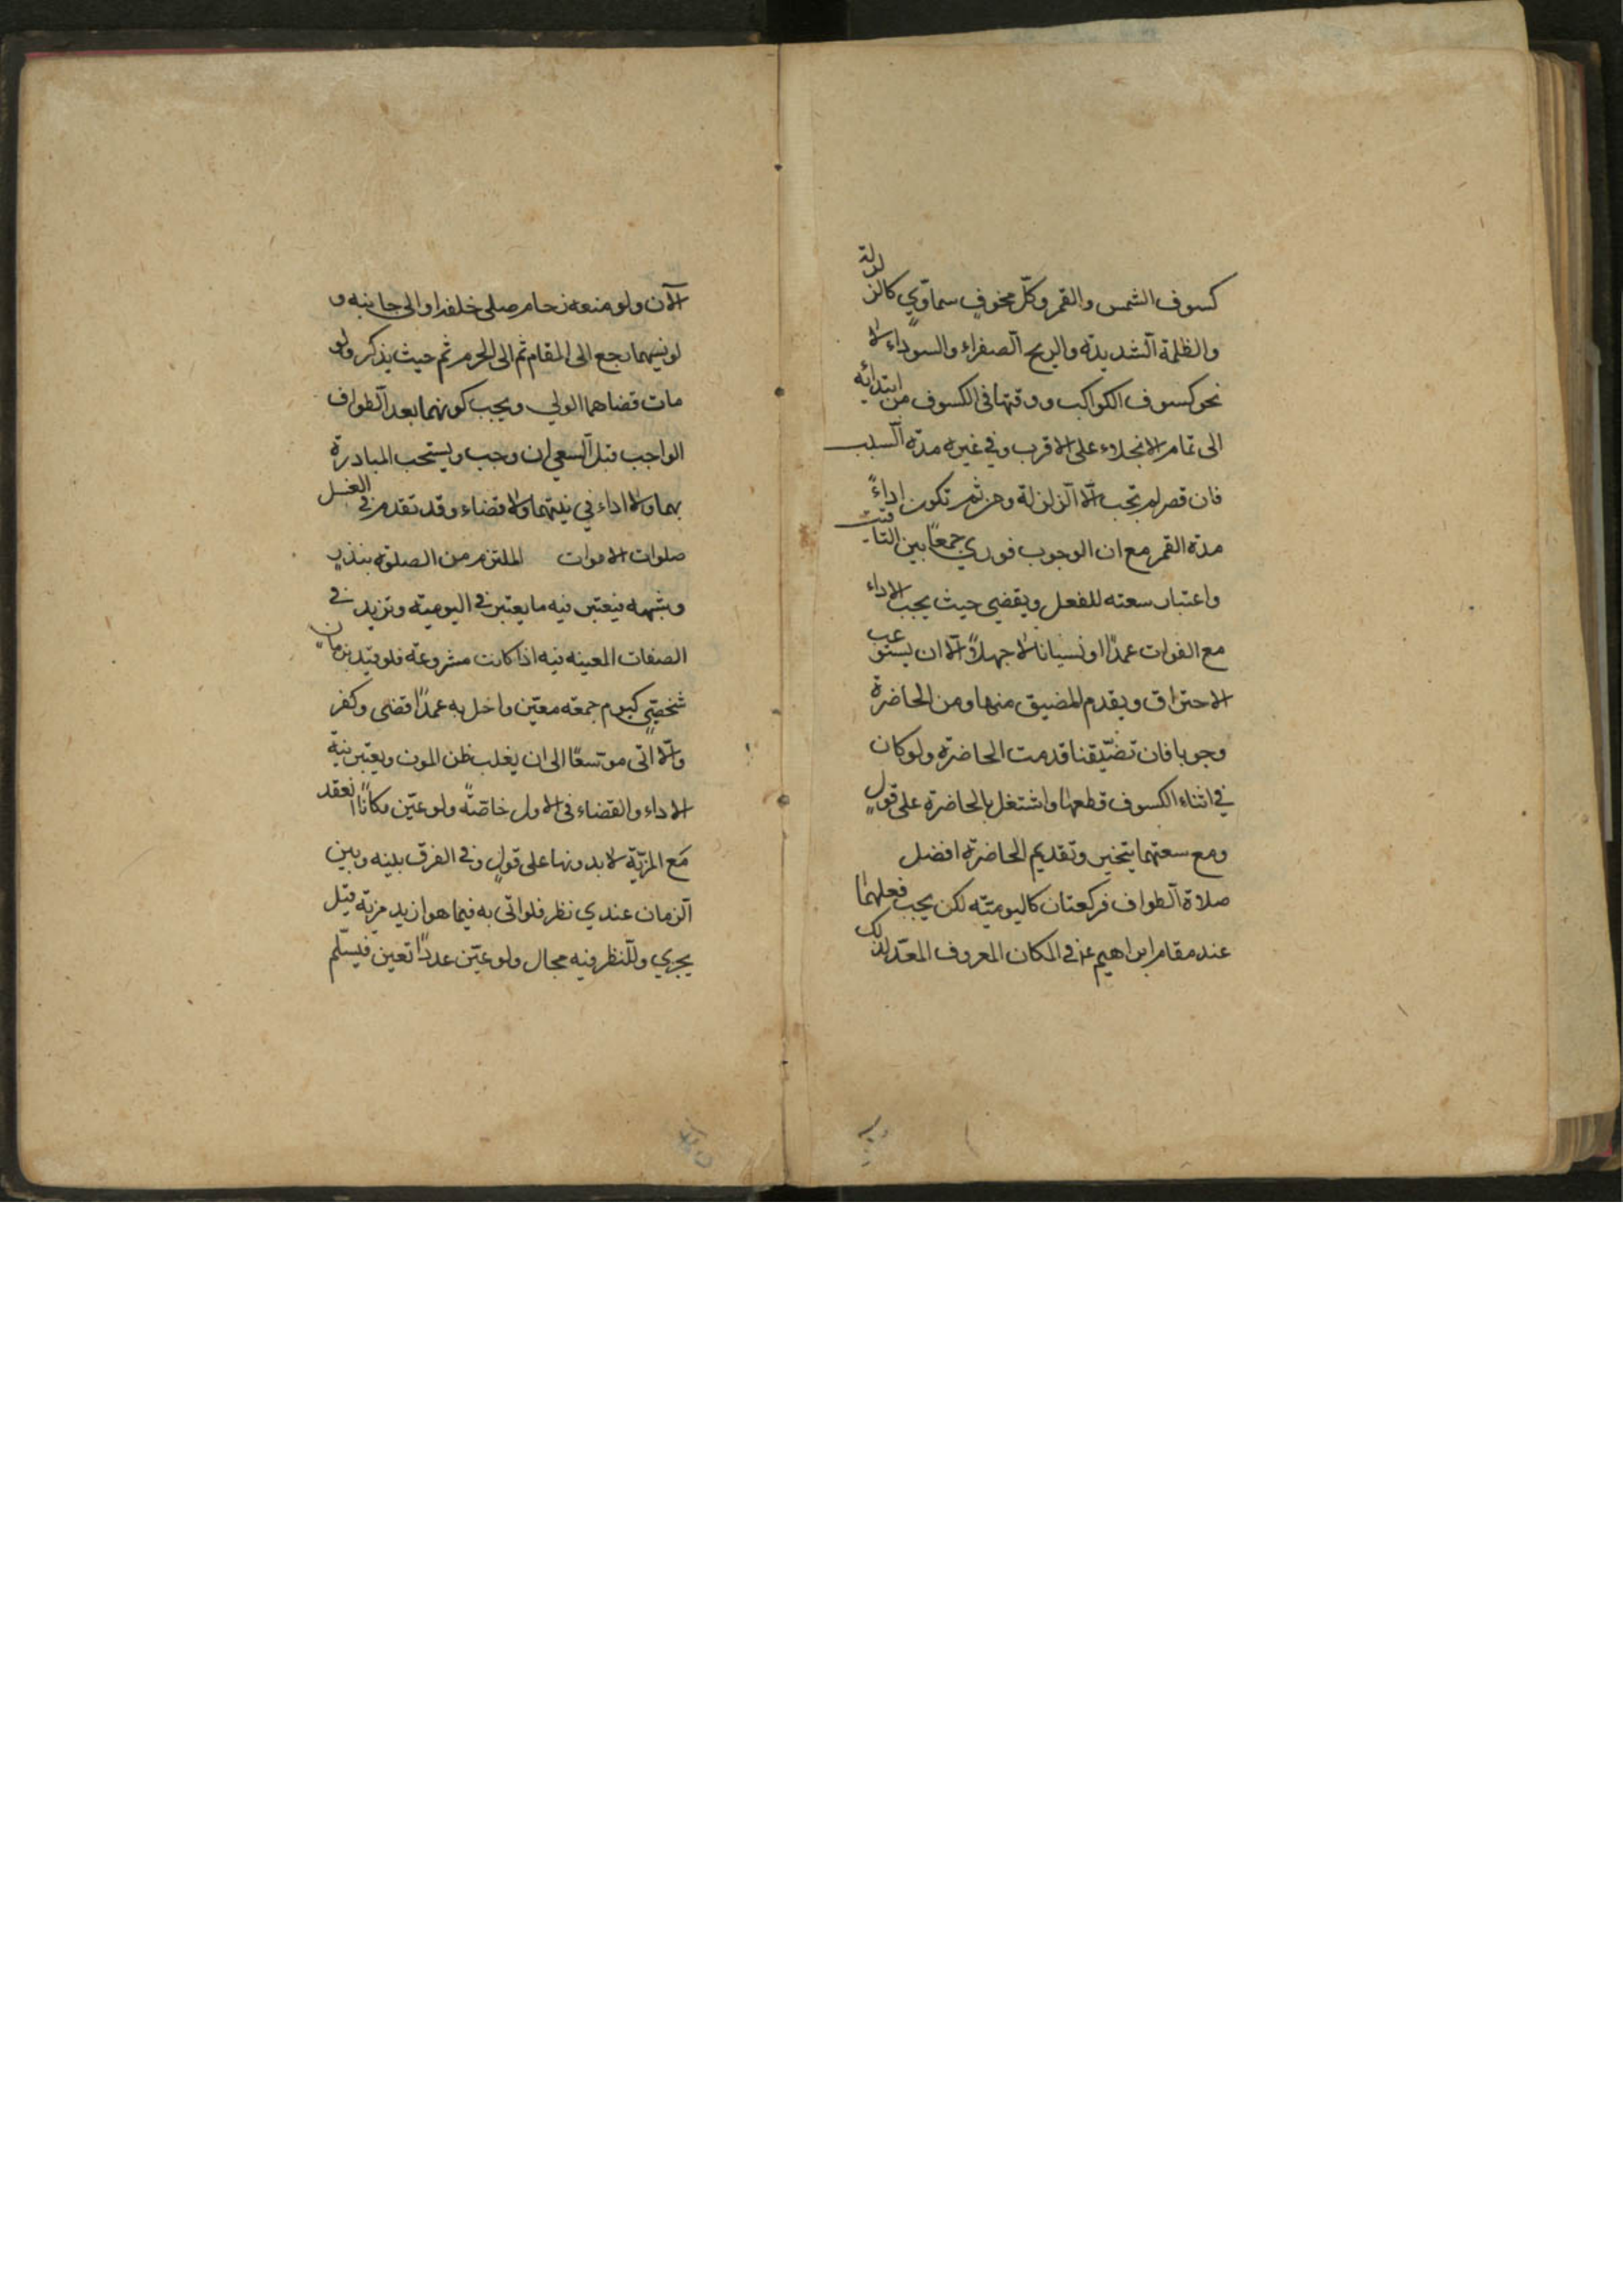 كسوف الشمس والقمر وكلّ مخوفٍ سماوّي كالزلزلة
والظلمة الشديدة والريح الصفراء والسوداء لا
نحو كسوف الكواكب ووقتها فى الكسوف من ابتدائه
الى تمام الانجلاء على الاقرب وفي غيره مدة السبب
فان قصر لم تجب الّا الزلزلة ومن ثم تكون اداءً
مدة القمر مع ان الوجوب فوري جمعًا بين التاقيت
واعتبار سعته للفعل ويقضى حيث يجب الاداء
مع الفوات عمدًا او نسيانا لا جهلاً الّا ان يستوعب
الاحتراق ويقدم المضيق منها ومن الحاضرة
وجوبا فان تضيّقتا قدمت الحاضرة ولو كان
في اثناء الكسوف قطعها واشتغل بالحاضرة على قولٍ
ومع سعتهما يتخير وتقديم الحاضرة افضل
صلاة الطواف فركعتان كاليوميّه لكن يجب فعلهما
عند مقام ابراهيم ع في المكان المعروف المعدّ لذلك
الآن ولو منعه زحام صلى خلفه او الى جانبه و
لو نسيهما رجع الى المقام ثم الى الحرم ثم حيث يذكر ولو
مات قضاهما الولي ويجب كونهما بعد الطواف
الواجب قبل السعي ان وجب ويستحب المبادرة
بهما ولا اداء في نيتهما ولا قضاء وقد تقدم في الغسل
صلوات الاموات الملتزم من الصلوة بنذرٍ
وشبهه فيعتبر فيه ما يعتبر في اليوميّه وتزيد في
الصفات المعينه فيه اذا كانت مشروعة فلو قيّد بزمان
شخصّي كيوم جمعه معيّن واخل به عمدًا قضى وكفر
والّا اتى موسّعًا الى ان يغلب ظن الموت ويعتبر نيّة
الاداء والقضاء فى الاول خاصّةً ولو عيّن مكانًا انعقد
مع المزيّة لا بدونها على قولٍ وفي الفرق بينه وبين
الزمان عندي نظر فلو اتى به فيما هو ازيد مزيّة قيل
يجزي وللنظر فيه مجال ولو عيّن عددًا تعين فيسلّم